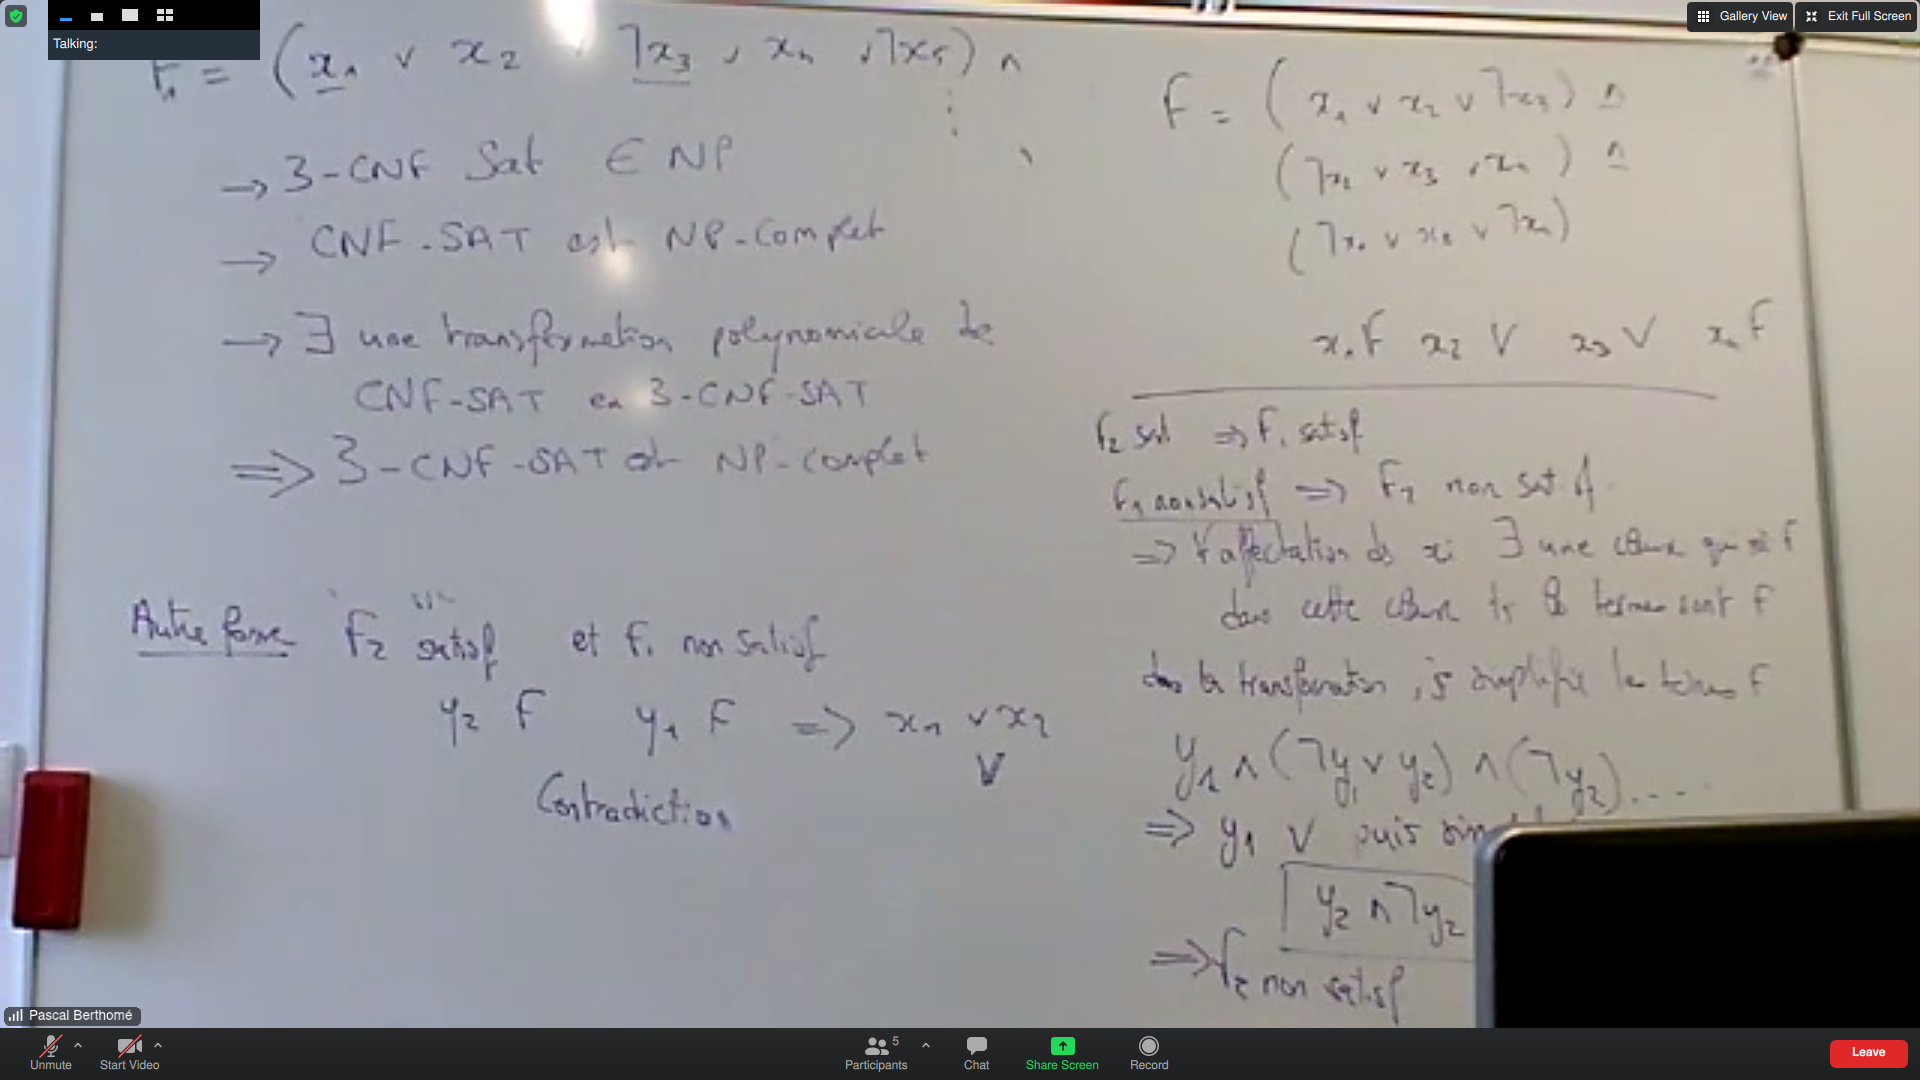 Talking:
Gallery View
Exit Full Screen
F₁ = (x₁ ∨ x₂ ∨ ¬x₃ ∨ x₄ ∨ ¬x₅) ∧
→ 3-CNF Sat ∈ NP
→ CNF-SAT est NP-complet
→ ∃ une transformation polynomiale de
CNF-SAT en 3-CNF-SAT
⇒ 3-CNF-SAT est NP-complet
Autre forme F₂ satisf et F₁ non satisf
y₂ F y₁ F ⇒ x₁ ∨ x₂
V
Contradiction
F = (x₁ ∨ x₂ ∨ ¬x₃) ∧
(¬x₂ ∨ x₃ ∨ x₄) ∧
(¬x₁ ∨ x₂ ∨ ¬x₄)
x₁ F x₂ V x₃ V x₄ F
F₂ sat ⇒ F₁ satisf
F₁ non satisf ⇒ F₂ non satisf
⇒ ∀ affectation des xi ∃ une clause qui est F
dans cette clause ts les termes sont F
dans la transformation, je simplifie les termes F
y₁ ∧ (¬y₁ ∨ y₂) ∧ (¬y₂) ....
⇒ y₁ V puis
y₂ ∧ ¬y₂
⇒ F₂ non satisf
Pascal Berthomé
Unmute
Start Video
Participants
5
Chat
Share Screen
Record
Leave